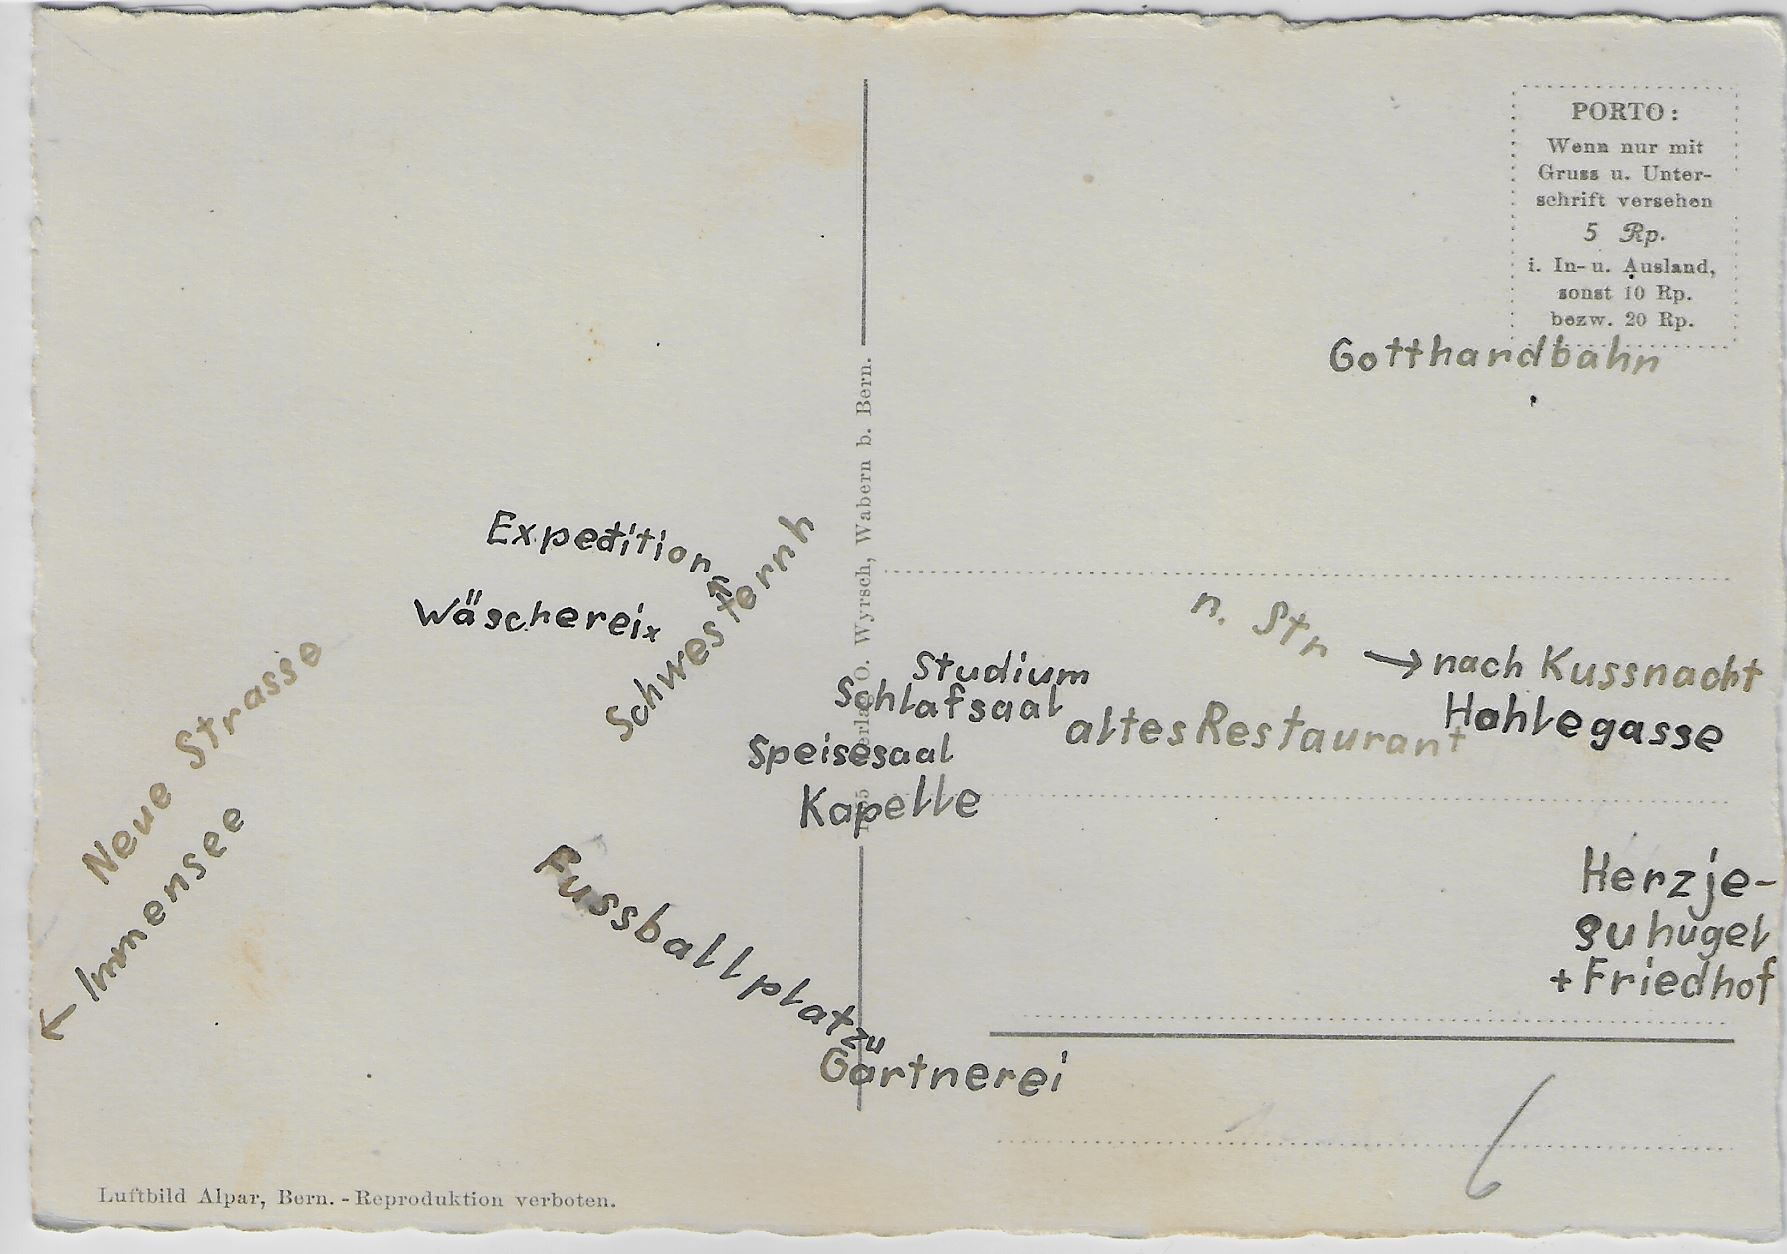 PORTO:
Wenn nur mit
Gruss u. Unter-
schrift versehen
5 Rp.
i. In- u. Ausland,
sonst 10 Rp.
bezw. 20 Rp.
Gotthardbahn
Expedition
Wäscherei x
Schwesternh
n. Str
→ nach Kussnacht
Hohlegasse
Studium
Schlafsaal
altes Restaurant
Speisesaal
Kapelle
Neue Strasse
← Immensee
Fussballplatz
zu
Gärtnerei
Herzje-
suhugel
+ Friedhof
O. Wyrsch, Wabern b. Bern.
Luftbild Alpar, Bern. - Reproduktion verboten.
6